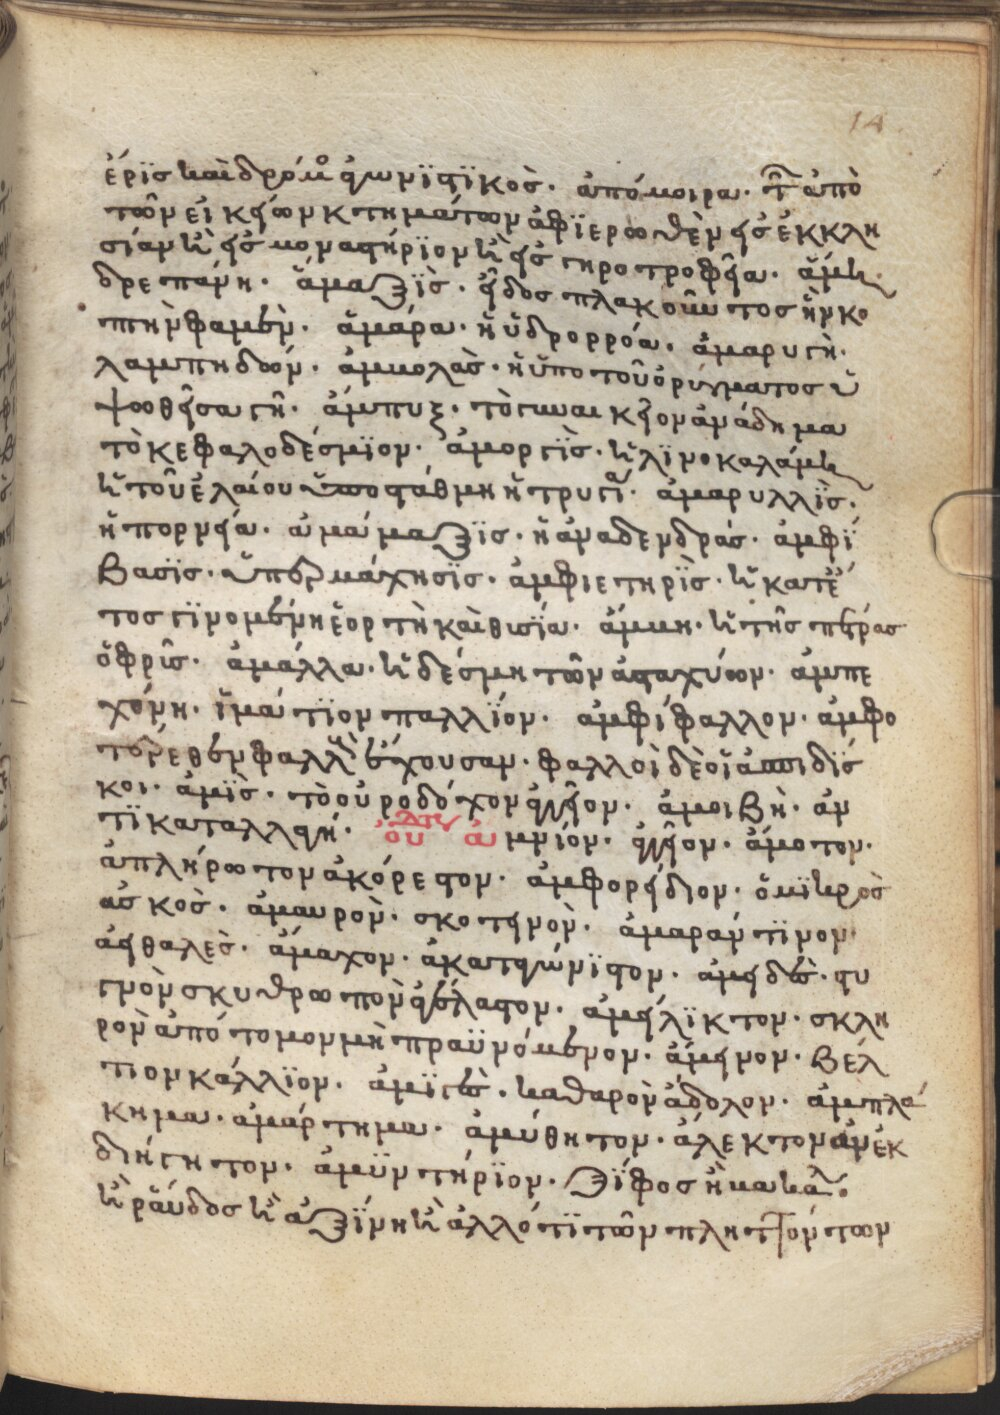 14
ἔρϊς καὶ δρόμος ἀγωνϊστϊκὸς. ἀπόμοιρα. τὸ ἀπὸ
τῶν οἰκείων κτημάτων ἀφϊερωθὲν εἰς ἐκκλη
σίαν ἢ εἰς μοναστήρϊον ἢ εἰς γηροτροφεῖα. ἄμη.
δρεπάνη. ἅμαξϊς. εἶδος πλακοῦντος ἢ
πτην. ἀμάρα. ἡ ὑδρορρόα. ἀμαρυγὴ.
λαμπηδών. ἀμμολὰς. ἡ ὑπὸ τοῦ ὀρύγματος ὑ
ψωθεῖσα γῆ. ἄμπυξ. τὸ γυναικεῖον ἀνάδημα
τὸ κεφαλοδέσμϊον. ἀμοργϊς. ἡ λϊνοκαλάμη
ἢ τοῦ ἐλαίου ὑποστάθμη ἢ τρυγία. ἀμαρυλλϊς.
ἡ πορνεία. ἁμάμαξϊς. ἡ ἀναδενδράς. ἀμφϊ
βασϊς. ὑπερμάχησϊς. ἀμφιετηρϊς. ἡ κατ' ἔ
τος γϊνομένη ἑορτὴ καὶ θυσϊα. ἄμμη. ἡ τῆς πέτρας
ὀφρῦς. ἀμάλλα. ἡ δέσμη τῶν ἀσταχύων. ἀμπε
χόνη. ἱμάτϊον παλλϊον. ἀμφίφαλλον. ἀμφο
τέρωθεν φαλλοὺς ἔχουσαν. φαλλοὶ δὲ οἱ ἀσπιδϊσ
κοι. ἀμϊς. τὸ οὐροδόχον ἀγγεῖον. ἀμοιβὴ. ἀν
τϊκαταλλαγή. οὐδέτερον ἀμνίον. ἀγγεῖον. ἄμοτον.
ἀπλήρωτον ἀκόρεστον. ἀμφορείδιον. ὁ μϊκρὸς
ἀσκὸς. ἀμαυρὸν. σκοτεινὸν. ἀμαράντϊνον
ἀειθαλὲς. ἄμαχον. ἀκαταγώνϊστον. ἀμειδὲς. στυ
γνὸν σκυθρωπὸν ἀγέλαστον. ἀμείλϊκτον. σκλη
ρὸν ἀπότομον μὴ πραϋνόμενον. ἄμεινον. βέλ
τιον κάλλϊον. ἀμϊγὲς. καθαρὸν ἄδολον. ἀμπλά
κημα. ἁμάρτημα. ἀμύθητον. ἄλεκτον ἀνεκ
διήγητον. ἀμϋντήρϊον. ξϊφος ἢ μα
ἢ ράβδος ἢ ἀξϊνη ἢ ἄλλό τϊ τῶν πληττόντων